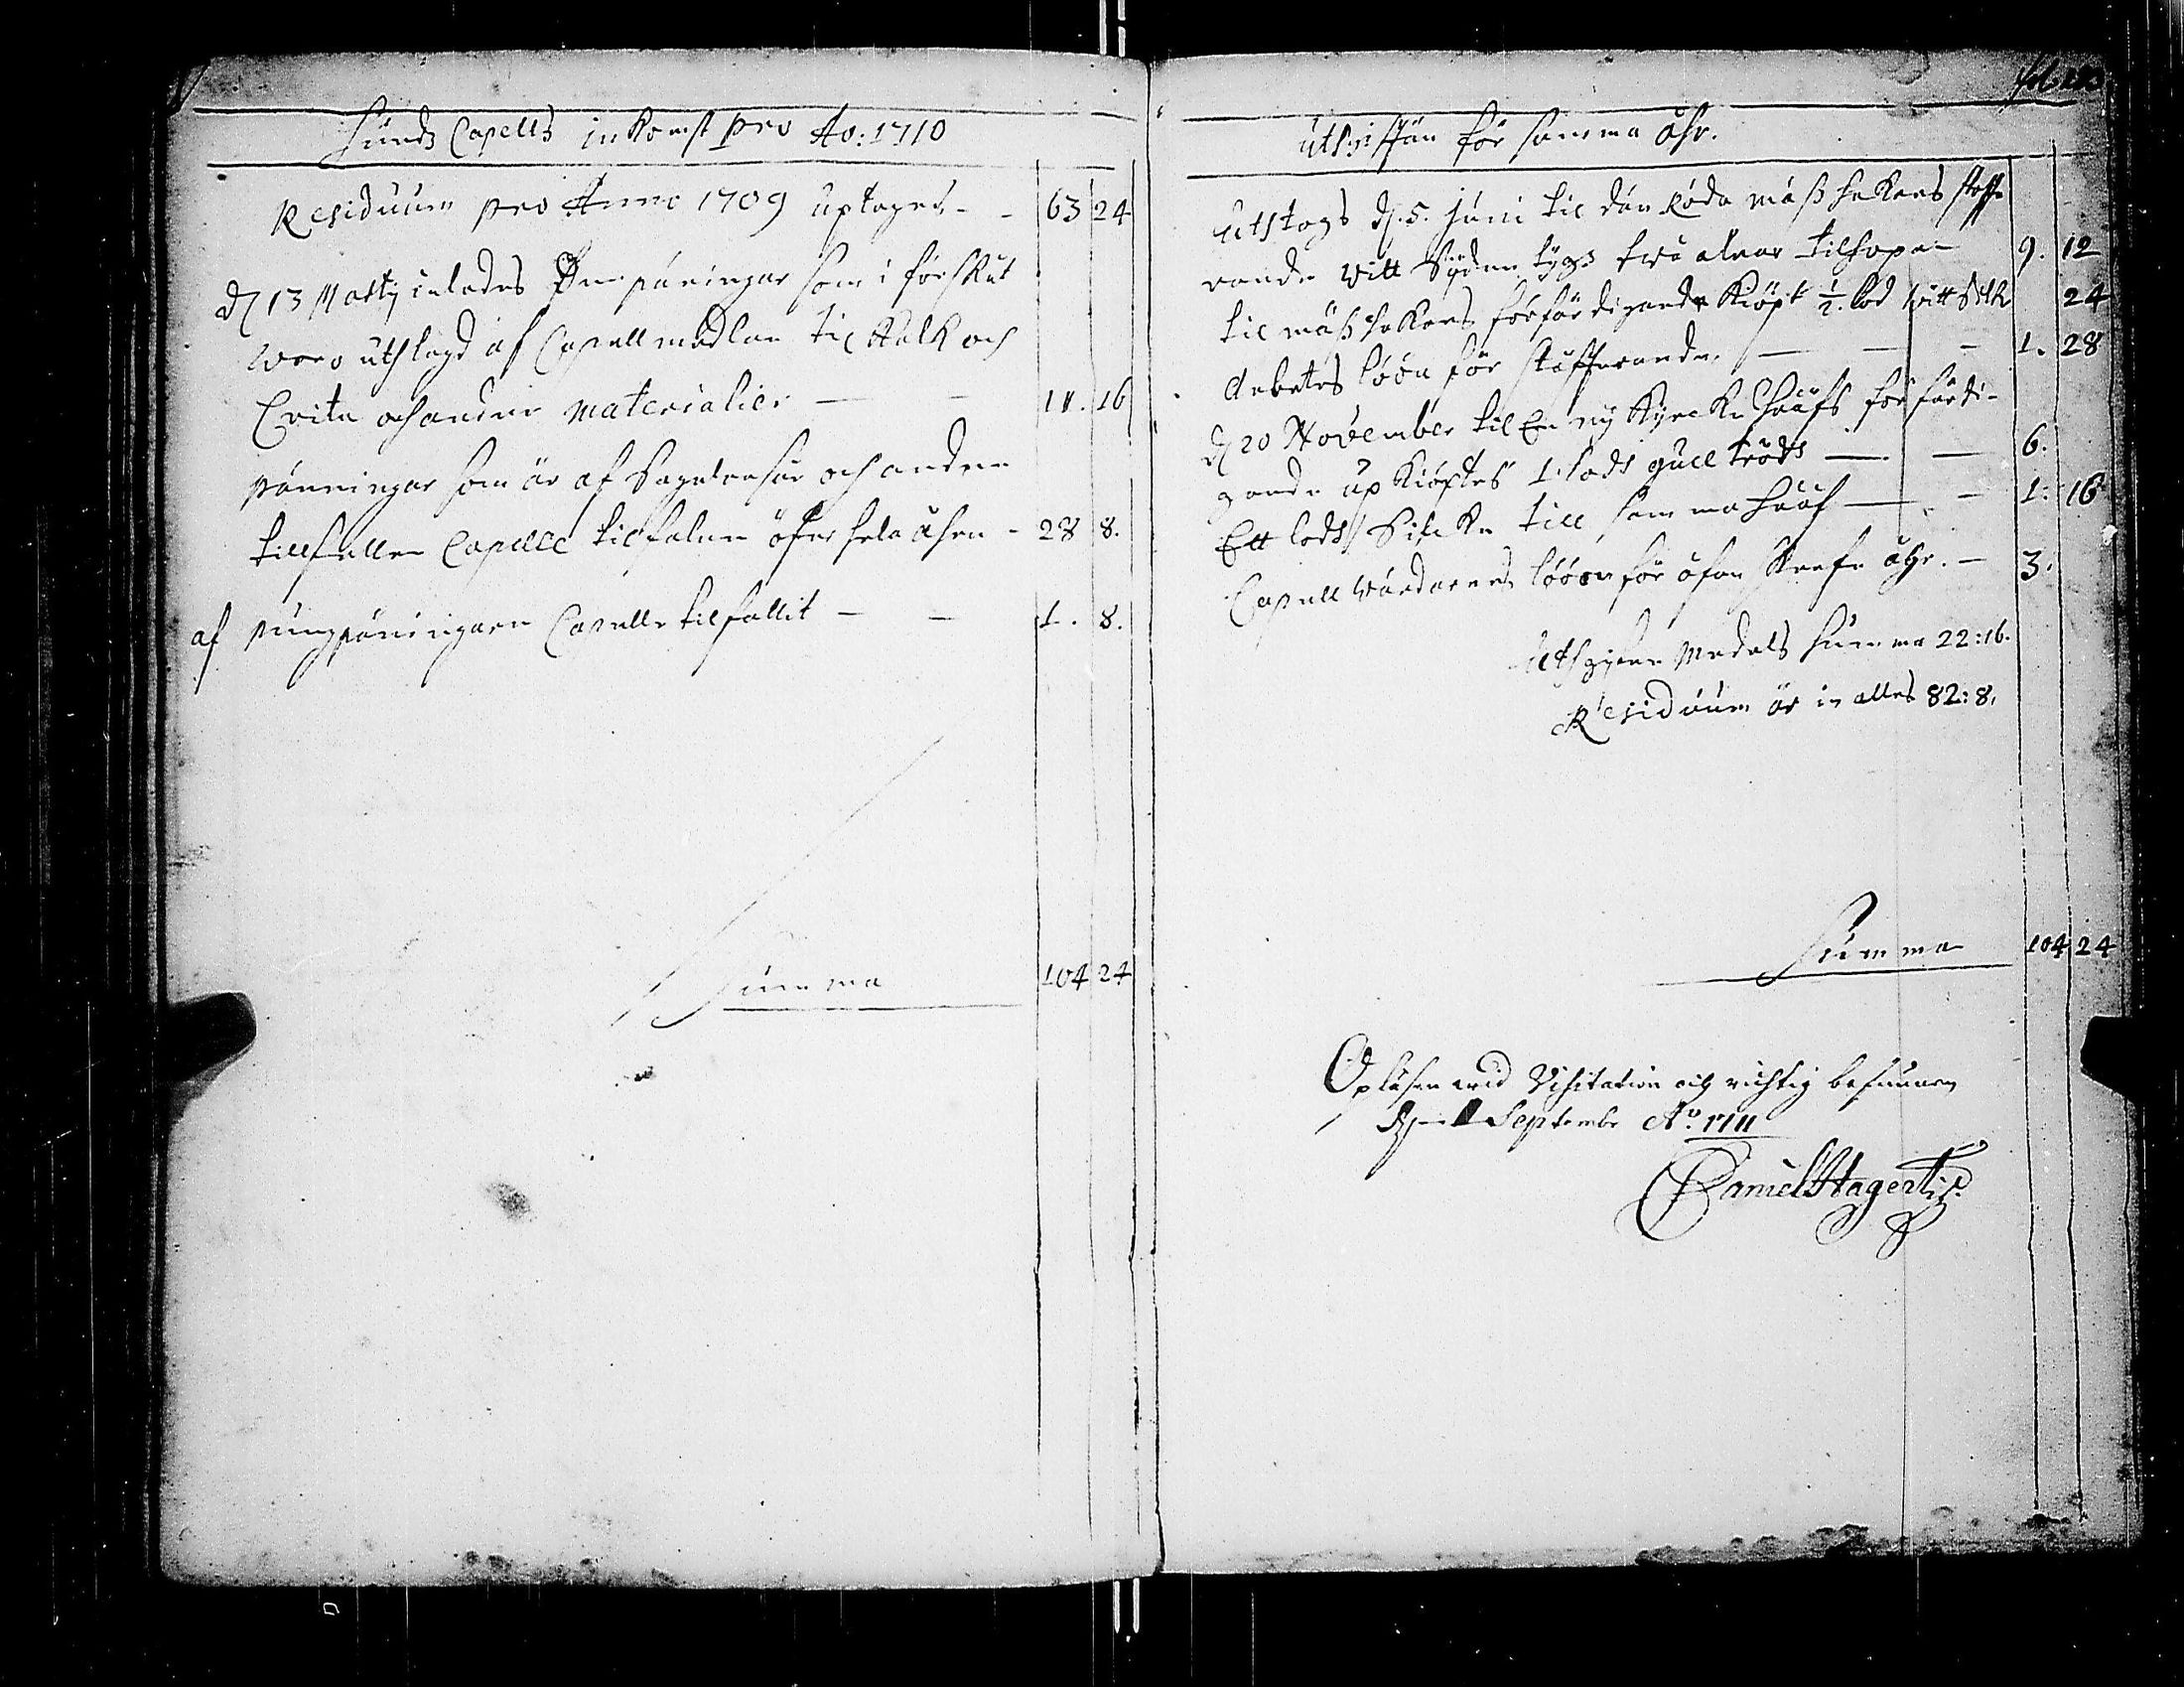 Sunds Capells inkomst pro Ao: 1710
Residuum pro Anno 1709 uptages - - 63 24
d 13 Martij inlades the päningar som i förskut
woro uthlagd af Capell medlen til Kalk och
Crita och andre materialier — — 11. 16
pänningar som är af och andra
tillfällen Capellet tilfalne öfver hela åhren - 28 8.
af pungpäningarn Capelle tilfallit — — 1. 8.
Summa 104 24
fol:
uthgifften för samma åhr.
Uthtogs d. 5. Juni til dän röda mässhakens staffe
rande witt tyg twå alnar tilhopa — 9. 12
til mässhakens förfärdigande kiöpt ½ lod witt silk 24
Arbetes löön för stafferande. — — — 1. 28
d 20 November til en ny Kyrcke hååfs förfärdi-
gande up kiöptes 1. lods gull trådt — — 6.
Ett lodt Silcke till samma hååf — — 1. 16
Capell wärdarnes löön för ofvan skrefne åhr. — 3.
Uthgifne Medels Summa 22:16.
Residuum är in alles 82:8.
Summa 104 24
Opläsen wid Visitation och richtig befunnen
d Septembr Ao. 1711
Daniel Hagert